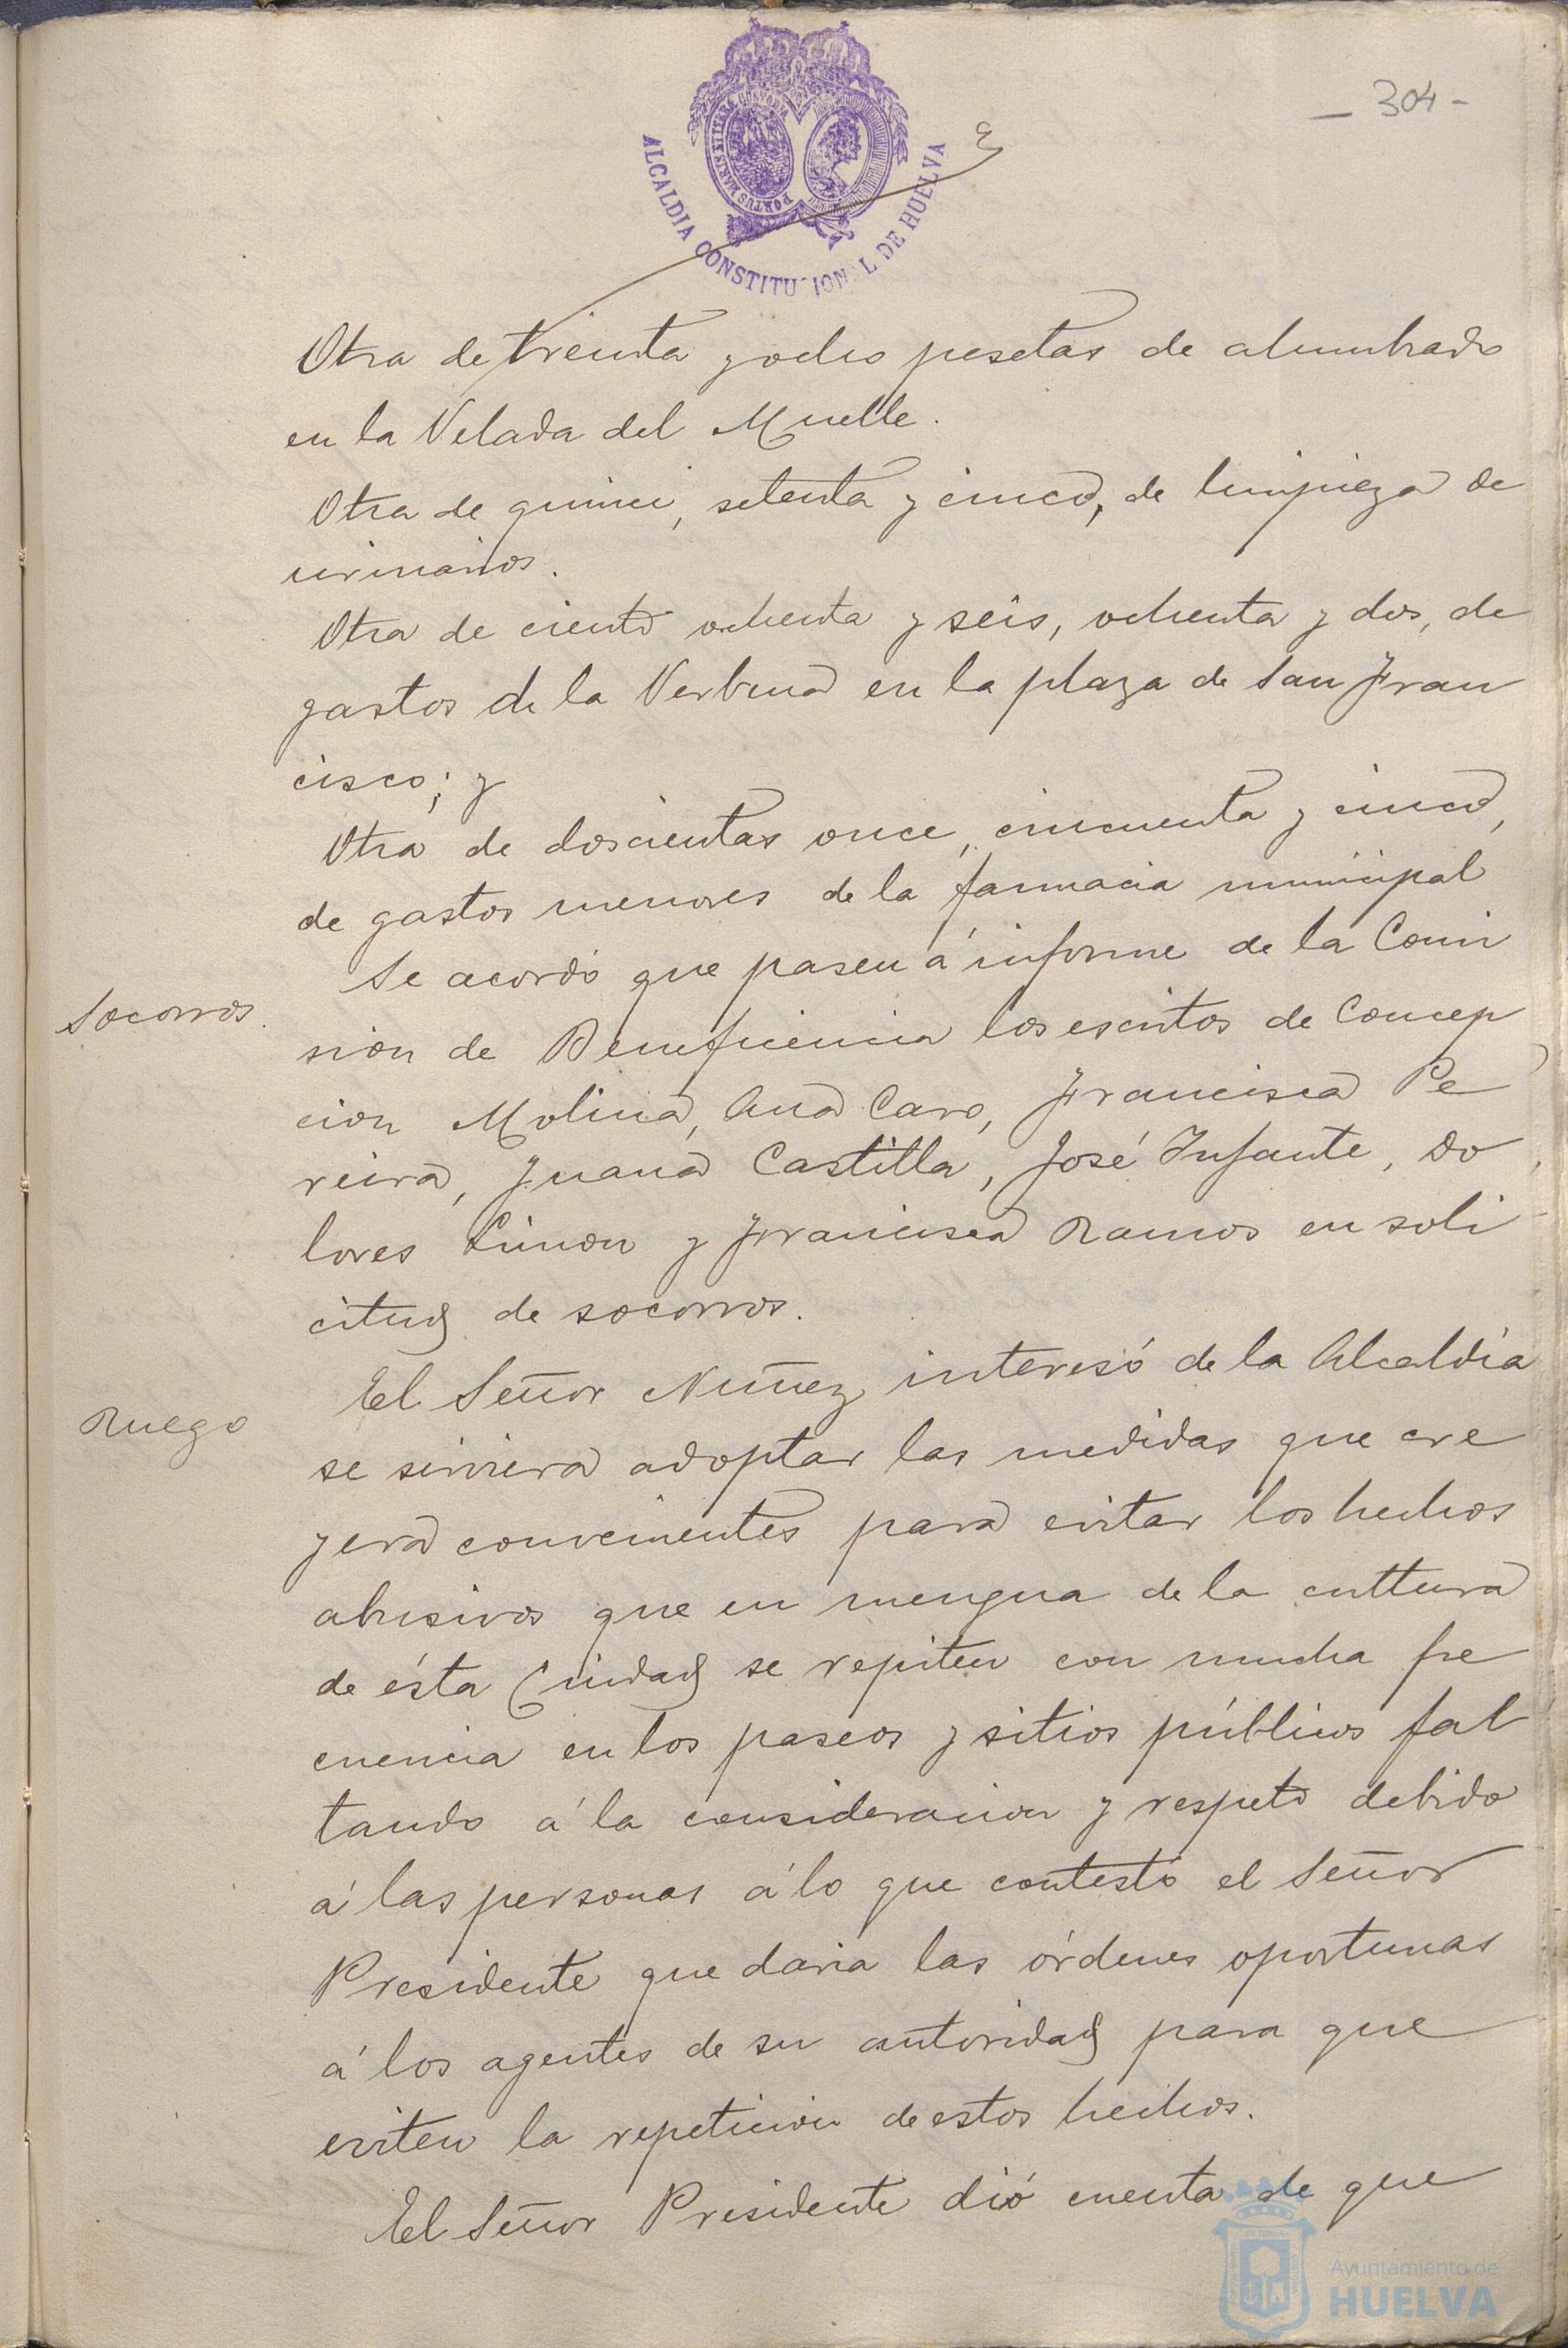 - 304 -
PORTUS MARIS ET TERRE CUSTODIA
ALCALDIA CONSTITUCIONAL DE HUELVA
Otra de treinta y ocho pesetas de alumbrado
en la Velada del Muelle.
Otra de quince, setenta y cinco, de limpieza de
urinarios.
Otra de ciento ochenta y seis, ochenta y dos, de
gastos de la Verbena en la plaza de San Fran
cisco; y
Otra de doscientas once, cincuenta y cinco,
de gastos menores de la farmacia municipal
Socorros.
Se acordó que pasen á informe de la Comi
sion de Beneficencia los escritos de Concep
cion Molina, Ana Caro, Francisca Pe
reira, Juana Castilla, José Infante, Do
lores Limon y Francisca Ramos en soli
citud de socorros.
Ruego
El Señor Nuñez interesó de la Alcaldía
se sirviera adoptar las medidas que cre
yera convenientes para evitar los hechos
abusivos que en mengua de la cultura
de ésta Ciudad se repiten con mucha fre
cuencia en los paseos y sitios públicos fal
tando á la consideracion y respeto debido
á las personas á lo que contestó el Señor
Presidente que daria las órdenes oportunas
á los agentes de su autoridad para que
eviten la repeticion de estos hechos.
El Señor Presidente dió cuenta de que
Ayuntamiento de
HUELVA